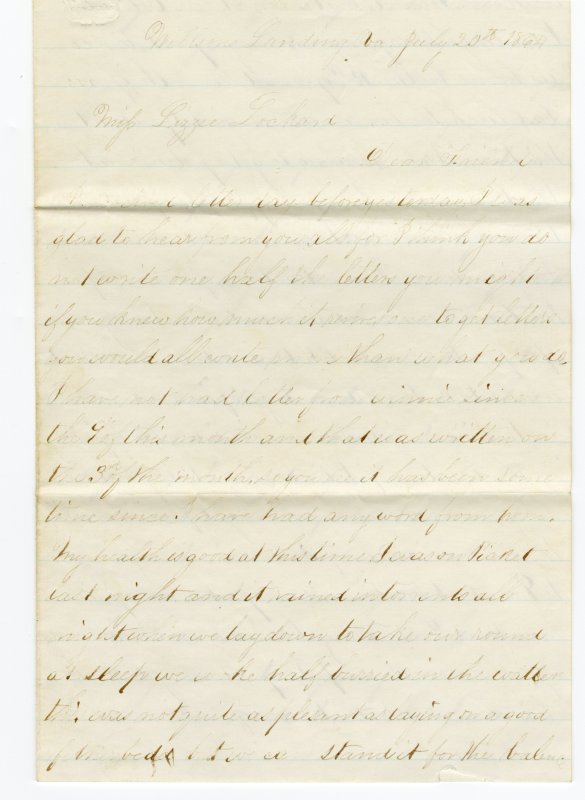 Wilsons Landing Va July 20th 1864
Miss Lizzie Lockard
Dear Friend
letter day before yesterday I was
glad to hear from you all for I think you do
not write one half the letters you might
if you knew how much it to get letters
you would all write more than what you do
I have not had letter from since
the 7 of this month and that was written on
the 3rd of the month, so you see it has been some
time since I have had any word from
My health is good at this time I was on Picket
last night and it rained in torrents all
night when we lay down to take our round
at sleep we woke half burried in the watter
this was not quite as plesant as laying on a good
bed but we can stand it for the balence